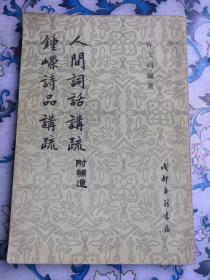 許文雨編著
人間詞話講疏 附補遺
鍾嶸詩品講疏
成都古籍書店